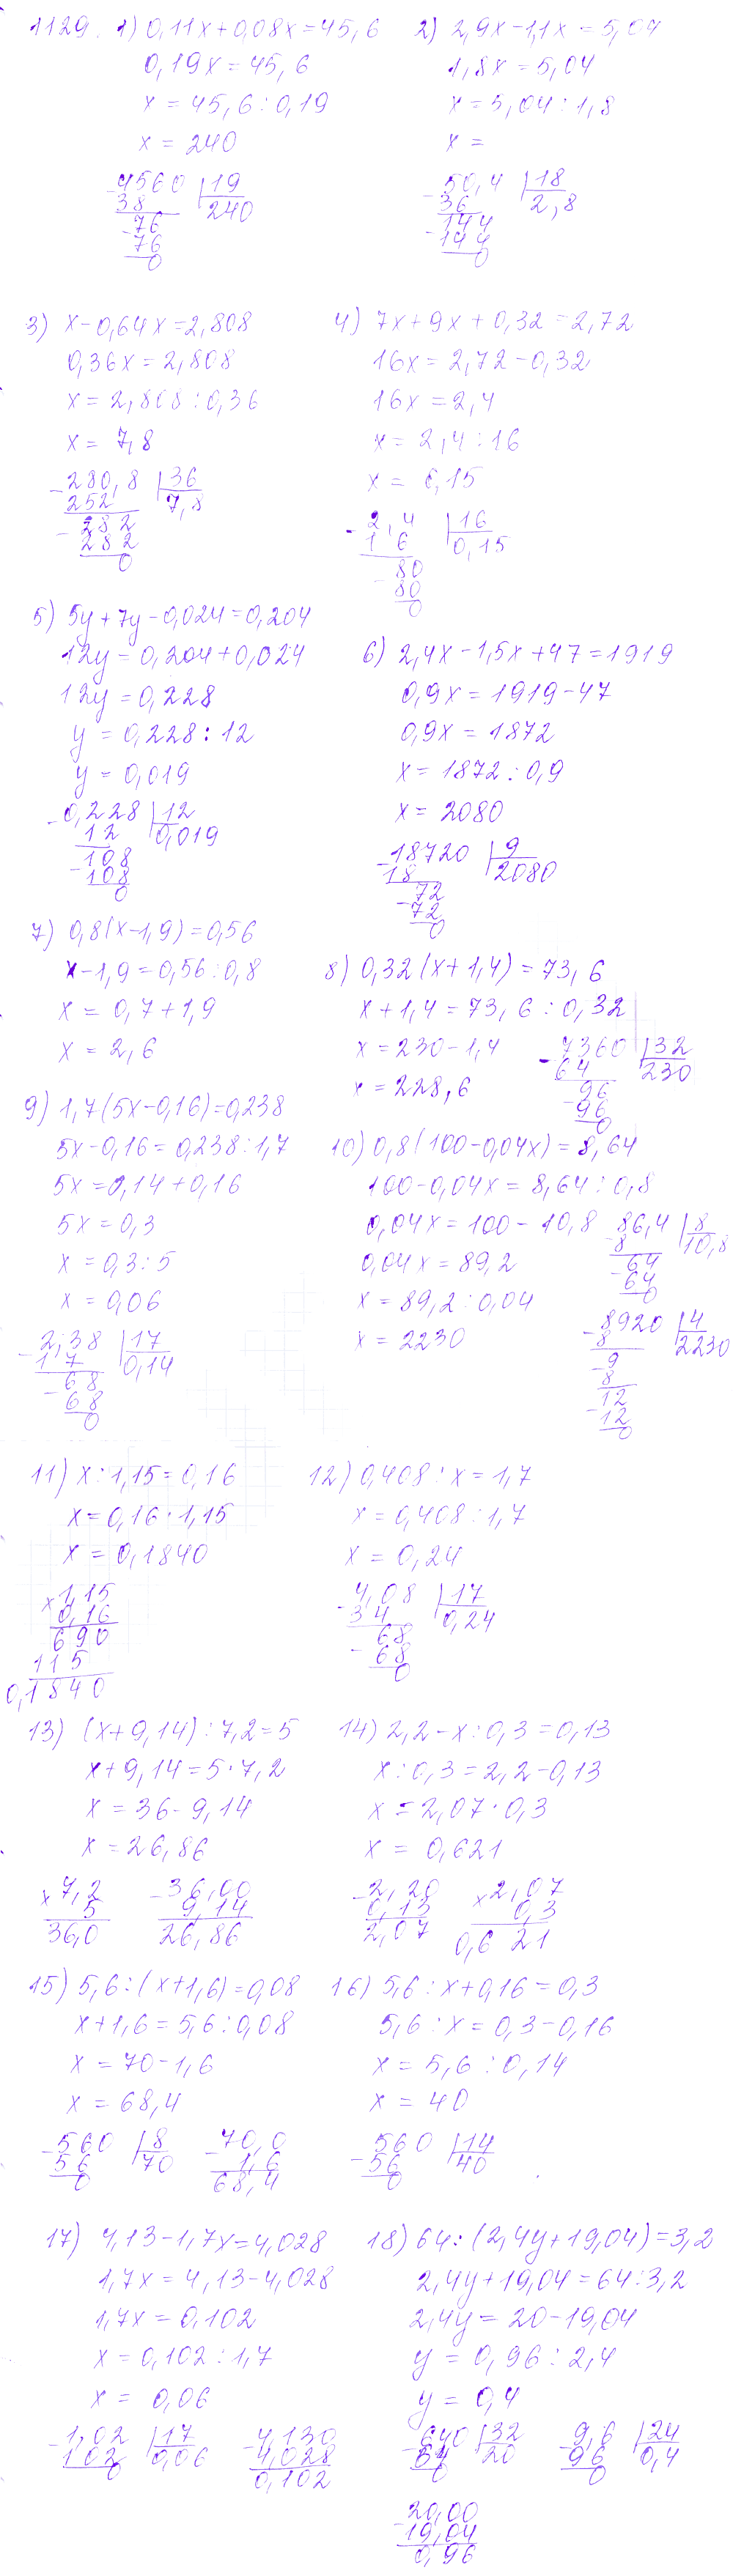 1129. 1) 0,11x+0,08x=45,6
0,19x=45,6
x=45,6:0,19
x=240
4560 |19
38 240
76
76
0
2) 2,9x-1,1x=5,04
1,8x=5,04
x=5,04:1,8
x=
50,4 |18
36 2,8
144
144
0
3) x-0,64x=2,808
0,36x=2,808
x=2,808:0,36
x=7,8
280,8 |36
252 7,8
282
282
0
4) 7x+9x+0,32=2,72
16x=2,72-0,32
16x=2,4
x=2,4:16
x=0,15
2,4 |16
1 6 0,15
80
80
0
5) 5y+7y-0,024=0,204
12y=0,204+0,024
12y=0,228
y=0,228:12
y=0,019
0,228 |12
12 0,019
108
108
0
6) 2,4x-1,5x+47=1919
0,9x=1919-47
0,9x=1872
x=1872:0,9
x=2080
18720 |9
18 2080
72
72
0
7) 0,8(x-1,9)=0,56
x-1,9=0,56:0,8
x=0,7+1,9
x=2,6
8) 0,32(x+1,4)=73,6
x+1,4=73,6:0,32
x=230-1,4
x=228,6
7360 |32
64 230
96
96
0
9) 1,7(5x-0,16)=0,238
5x-0,16=0,238:1,7
5x=0,14+0,16
5x=0,3
x=0,3:5
x=0,06
2,38 |17
1 7 0,14
68
68
0
10) 0,8(100-0,04x)=8,64
100-0,04x=8,64:0,8
0,04x=100-10,8
0,04x=89,2
x=89,2:0,04
x=2230
86,4 |8
8 10,8
64
64
0
8920 |4
8 2230
9
8
12
12
0
11) x:1,15=0,16
x=0,16·1,15
x=0,1840
×1,15
0,16
690
115
0,1840
12) 0,408:x=1,7
x=0,408:1,7
x=0,24
4,08 |17
3 4 0,24
68
68
0
13) (x+9,14):7,2=5
x+9,14=5·7,2
x=36-9,14
x=26,86
×7,2
5
36,0
-36,00
9,14
26,86
14) 2,2-x:0,3=0,13
x:0,3=2,2-0,13
x=2,07·0,3
x=0,621
-2,20
0,13
2,07
×2,07
0,3
0,621
15) 5,6:(x+1,6)=0,08
x+1,6=5,6:0,08
x=70-1,6
x=68,4
560 |8
56 70
0
-70,0
1,6
68,4
16) 5,6:x+0,16=0,3
5,6:x=0,3-0,16
x=5,6:0,14
x=40
560 |14
56 40
0
17) 4,13-1,7x=4,028
1,7x=4,13-4,028
1,7x=0,102
x=0,102:1,7
x=0,06
1,02 |17
102 0,06
0
-4,130
4,028
0,102
18) 64:(2,4y+19,04)=3,2
2,4y+19,04=64:3,2
2,4y=20-19,04
y=0,96:2,4
y=0,4
640 |32
64 20
0
9,6 |24
96 0,4
0
-20,00
19,04
0,96